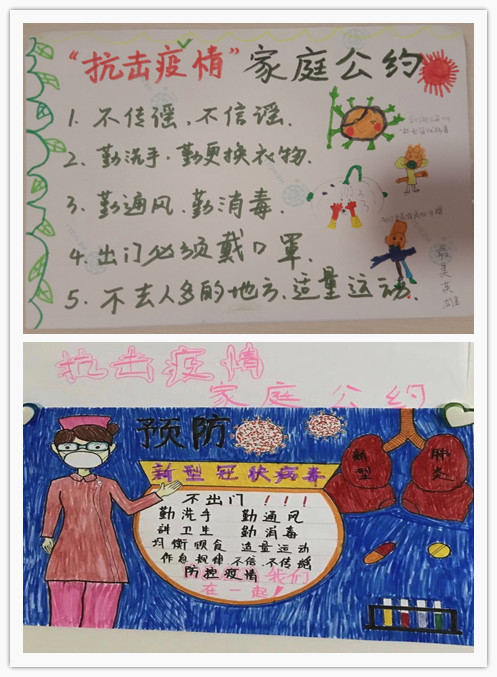 “抗击疫情”家庭公约
1. 不传谣,不信谣.
2. 勤洗手.勤更换衣物.
3. 勤通风.勤消毒.
4. 出门必须戴口罩.
5. 不去人多的地方.适量运动.
最美英雄
抗击疫情
家庭公约
预防
新型冠状病毒
新型 肺炎
不出门!!!
勤洗手 勤通风
讲卫生 勤消毒
均衡膳食 适量运动
作息规律 不信.不传谣
防控疫情 我们
在一起!